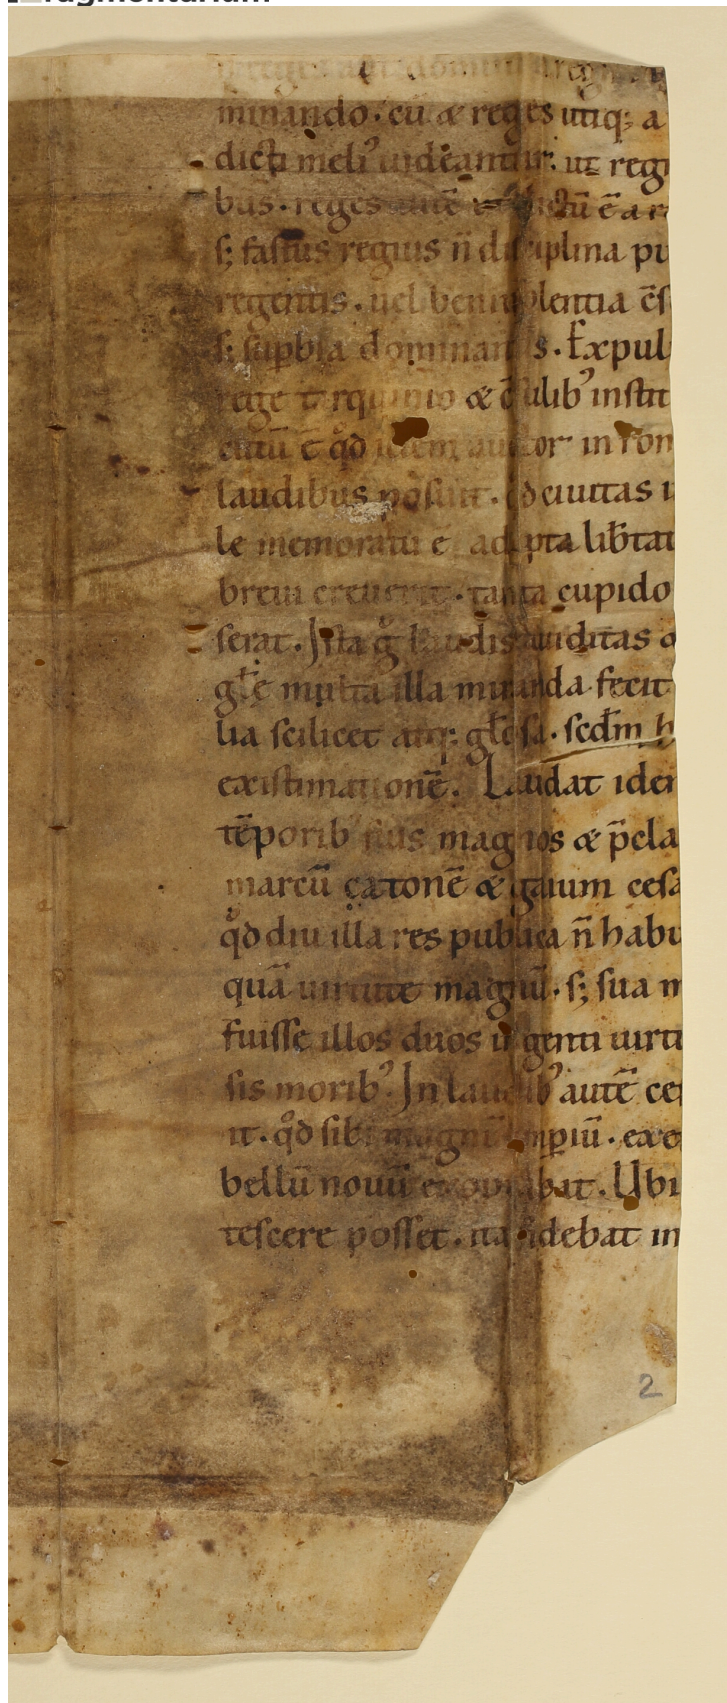 minando. cū & reges utiq; a
dicti meli᾽ uideantur. ut regi
bus. reges autē ē a re
s; fastus regius n̄ disciplina pu
regentis. uel beniuolentia c̄s
s; supbia dominantis. Expul
rege tarquinio & c̄sulib᾽ instit
cutū ē qd̄ idem auctor in rom
laudibus posuit. qd̄ ciuitas i
le memoratu ē adepta lib̄tat
breui creuerit. tanta cupido
serat. Ista g̊ laudis auiditas
gl̄ę multa illa miranda fecit
lia scilicet atq; gl̄osa. scdm̄ h
existimationē. Laudat iden
tēporib᾽ suis magnos & p̄cla
marcū catonē & gaium cesa
qd̄ diu illa res publica n̄ habu
quā uirtute magnū. s; sua m
fuisse illos duos igenti uirt
sis morib᾽. In laudib᾽ autē ce
it. qd̄ sibi magnū impiū. exe
bellū nouū exoptabat. Ubi
tescere posset. ita fidebat in
2